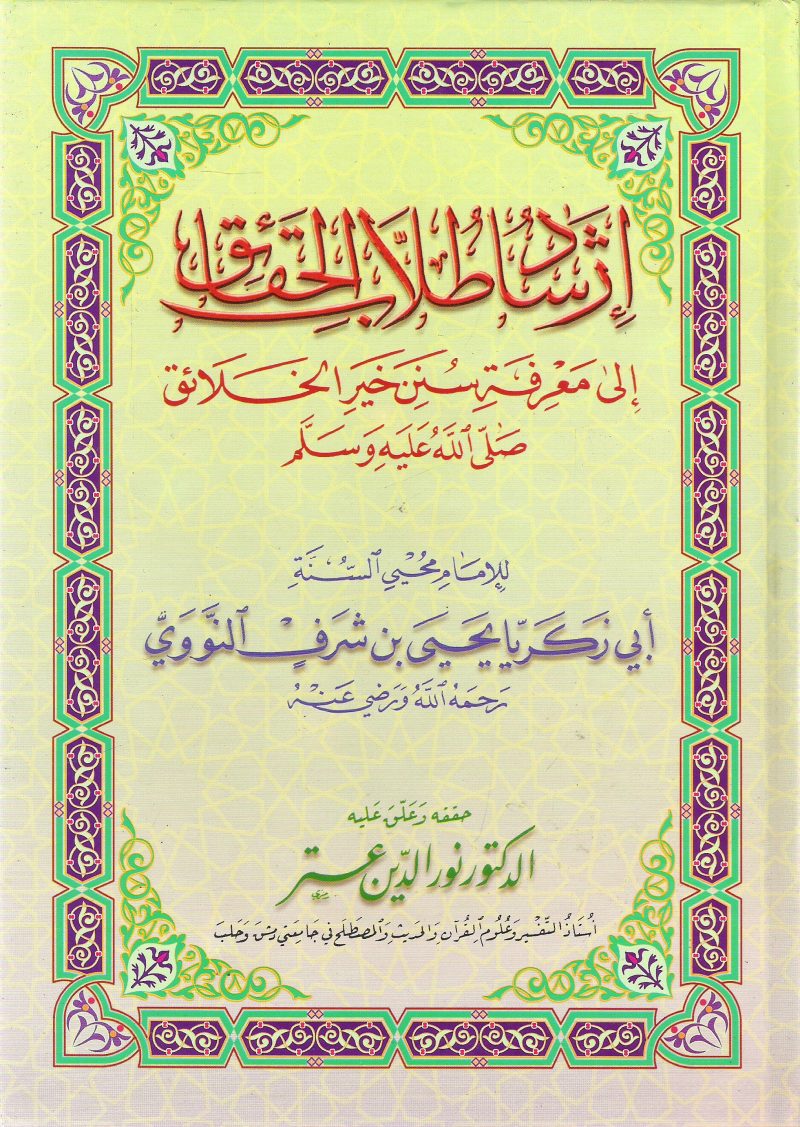 إرشاد طلاب الحقائق
إلى معرفة سنن خير الخلائق
صلى الله عليه وسلم
للإمام محيي السنة
أبي زكريا يحيى بن شرف النووي
رحمه الله ورضي عنه
حققه وعلق عليه
الدكتور نور الدين عتر
أستاذ التفسير وعلوم القرآن والحديث والمصطلح في جامعتي دمشق وحلب